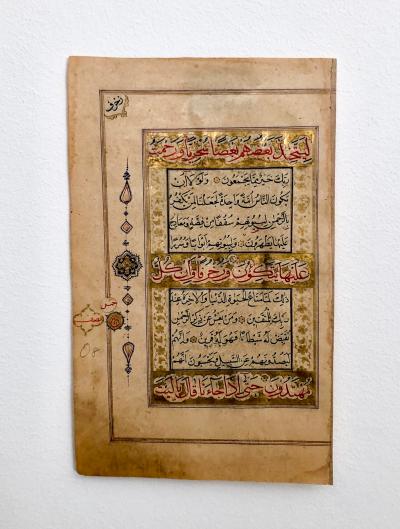 زخرف
لِيَتَّخِذَ بَعْضُهُمْ بَعْضًا سُخْرِيًّا وَرَحْمَتُ
رَبِّكَ خَيْرٌ مِمَّا يَجْمَعُونَ وَلَوْلَا أَنْ
يَكُونَ النَّاسُ أُمَّةً وَاحِدَةً لَجَعَلْنَا لِمَنْ يَكْفُرُ
بِالرَّحْمٰنِ لِبُيُوتِهِمْ سُقُفًا مِنْ فِضَّةٍ وَمَعَارِجَ
عَلَيْهَا يَظْهَرُونَ وَلِبُيُوتِهِمْ أَبْوَابًا وَسُرُرًا
عَلَيْهَا يَتَّكِئُونَ وَزُخْرُفًا وَإِنْ كُلُّ
ذٰلِكَ لَمَّا مَتَاعُ الْحَيٰوةِ الدُّنْيَا وَالْاٰخِرَةُ عِنْدَ
رَبِّكَ لِلْمُتَّقِينَ وَمَنْ يَعْشُ عَنْ ذِكْرِ الرَّحْمٰنِ
نُقَيِّضْ لَهُ شَيْطَانًا فَهُوَ لَهُ قَرِينٌ وَإِنَّهُمْ
لَيَصُدُّونَهُمْ عَنِ السَّبِيلِ وَيَحْسَبُونَ أَنَّهُمْ
مُهْتَدُونَ حَتَّى إِذَا جَاءَنَا قَالَ يَالَيْتَ